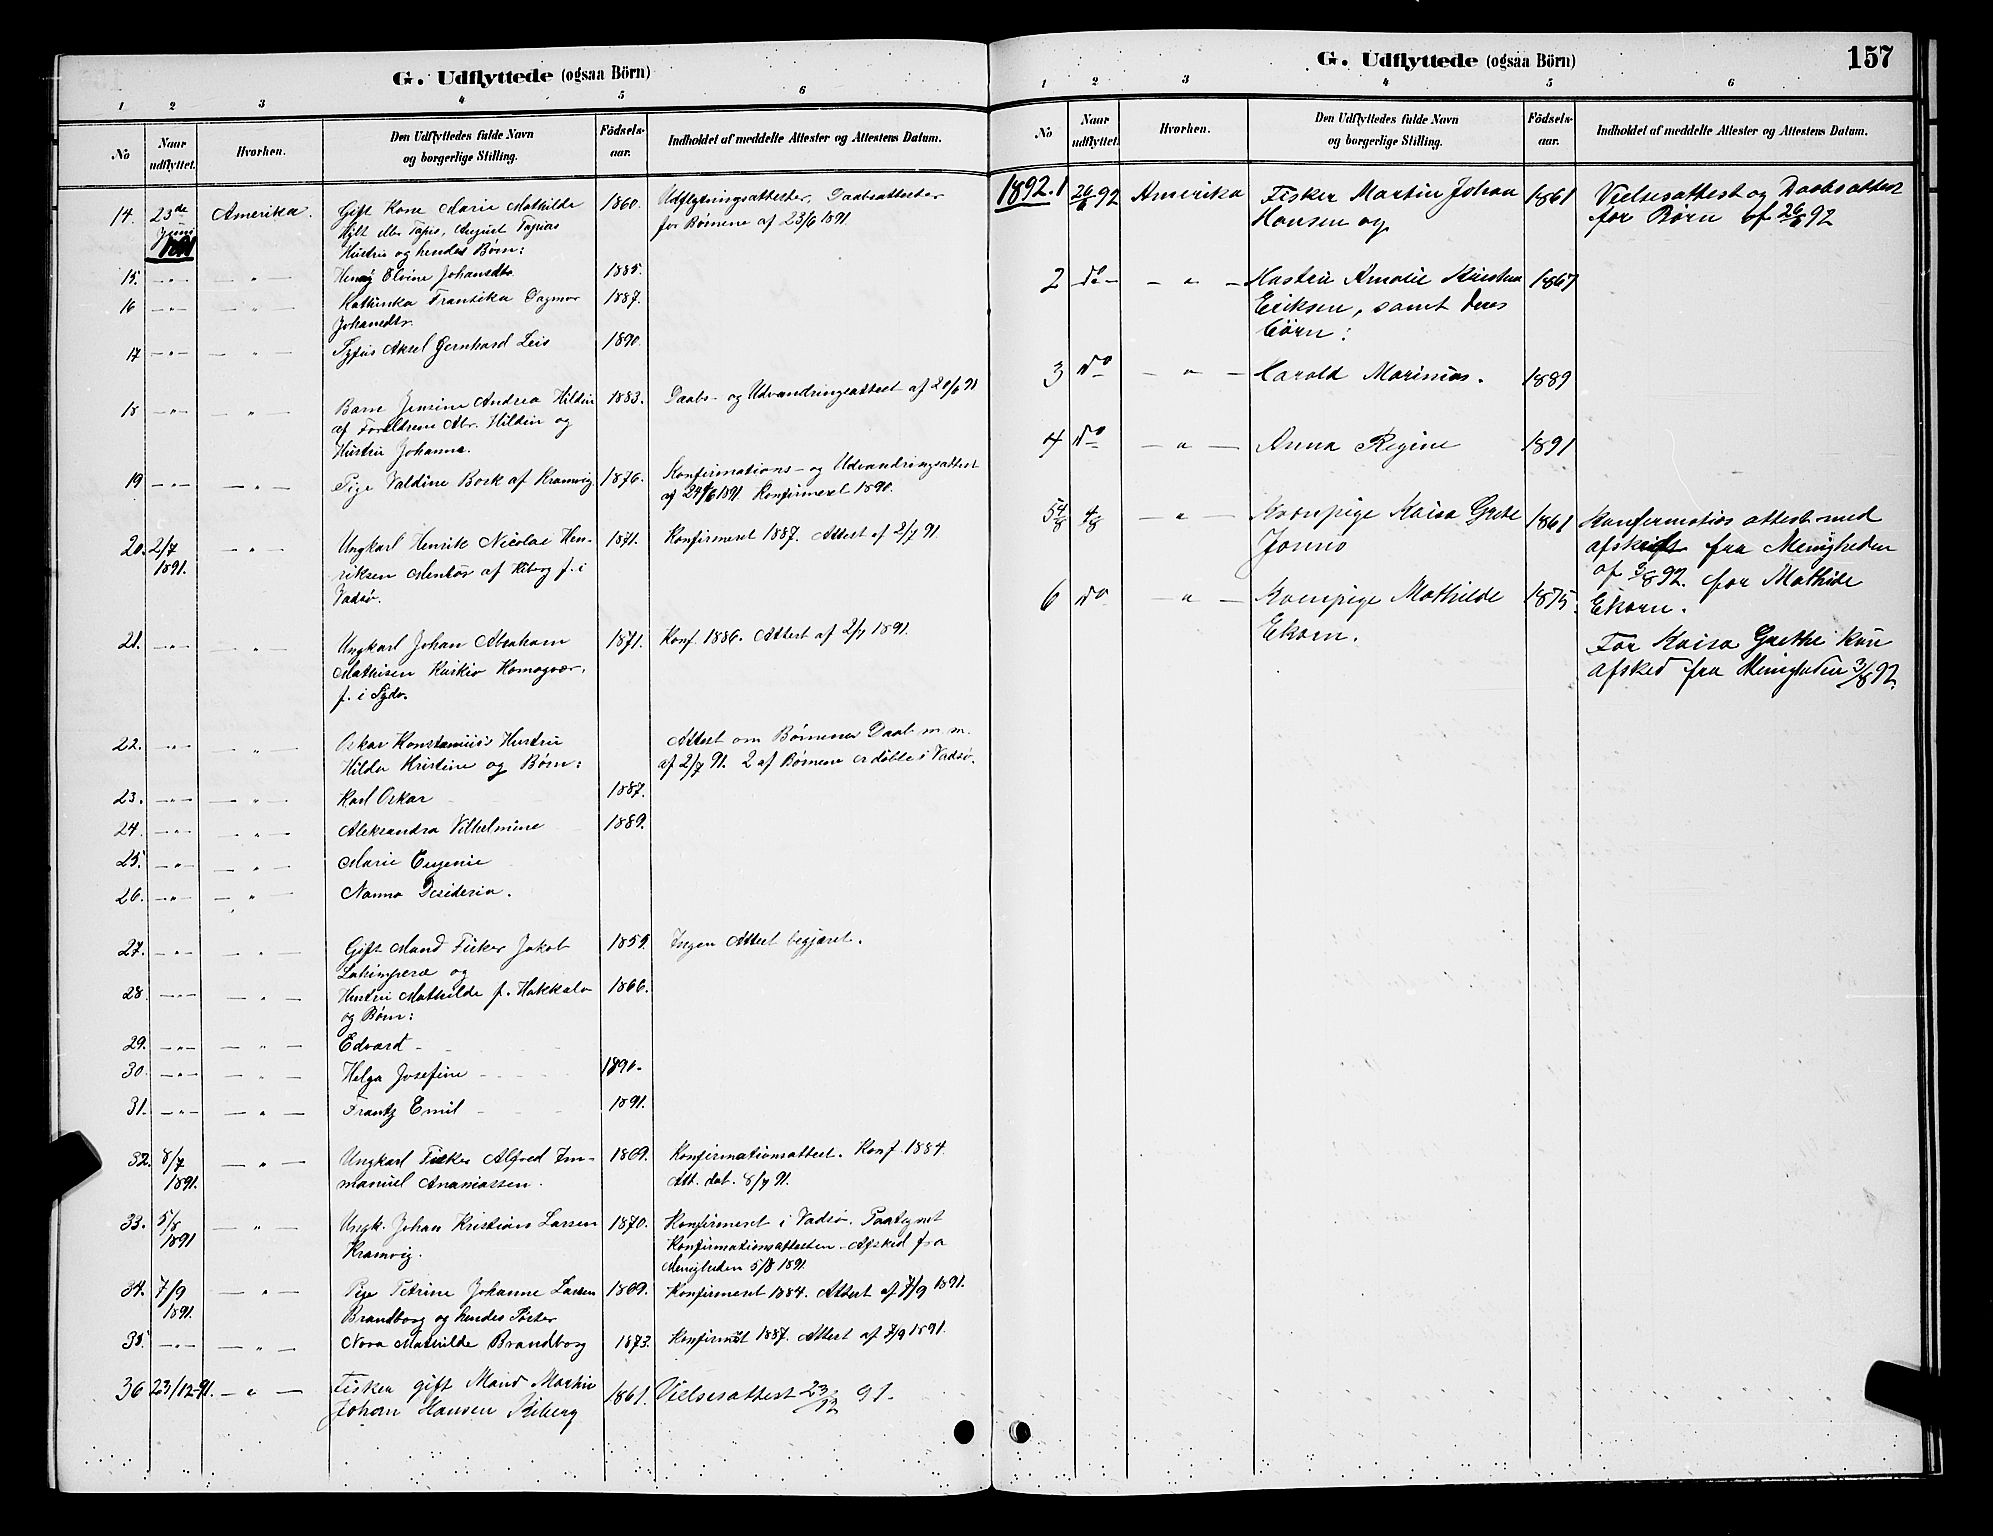 G. Udflyttede (ogsaa Börn)
1 2 3 4 5 6
No Naar udflyttet. Hvorhen. Den Udflyttedes fulde Navn og borgerlige Stilling. Födsels-aar. Indholdet af meddelte Attester og Attestens Datum.
14. 23de Juni 1891 Amerika. Gift Kone Marie Mathilde 1860. Udflytningsattester, Daabsattester
August Tapios for Børnene af 23/6 1891.
Hustru og hendes Børn:
15. —"— — " — Elvine Johansdtr. 1885.
16 —"— — " — Kathinka Fransika Dagmar 1887.
Johansdtr.
17 —"— — " — Aksel Gernhard Leis 1890.
18 —"— — " — Barn Jensine Andrea Hildin 1883. Daabs- og Udvandringsattest af 20/6 91
af Foreldrene Abr. Hildin og
Hustru Johanna.
19 —"— — " — Pige Valdine Bork af Kramvig 1876. Konfirmations- og Udvandringsattest
af 24/6 1891. Konfirmeret 1890.
20. 2/7 1891. — " — Ungkarl Henrik Nicolai Hen- 1871. Konfirmeret 1887. Attest af 2/7 91.
riksen af Kiberg f. i
Vadsø.
21. —"— — " — Ungkarl Johan Abraham 1871. Konf. 1886. Attest af 2/7 1891.
Mathisen Kuskio Homogvær,
f. i
22. —"— — " — Oskar Konstanius's Hustru Attest om Børnenes Daab m. m.
Hilda Kristine og Børn: af 2/7 91. 2 af Børnene er døbte i Vadsø.
23. —"— — " — Karl Oskar 1887.
24. —"— — " — Aleksandra Vilhelmine 1889.
25. —"— — " — Marie Eugenie
26. —"— — " — Nanna Desideria.
27. —"— — " — Gift Mand Fisker Jakob 1859. Ingen Attest begjæret.
Lahinperæ og
28. —"— — " — Hustru Mathilde f. Hakkala 1866.
og Børn:
29. —"— — " — Edvard
30. —"— — " — Helga Josefine 1890.
31. —"— — " — Frantz Emil 1891.
32. 8/7 1891. — " — Ungkarl Fisker Alfred Im- 1869. Konfirmationsattest. Konf. 1884.
manuel Ananiassen. Att. dat. 8/7 91.
33. 5/8 1891 — " — Ungk. Johan Kristian Larsen 1870. Konfirmeret i Vadsø. Paategnet
Kramvig. Konfirmationsattesten. Afsked fra
Menigheden 5/8 1891.
34. 7/9 1891. — " — Pige Petrine Johanne Larsen 1869. Konfirmeret 1884. Attest af 7/9 1891.
Brandborg og hendes Søster
35. —"— — " — Nora Mathilde Brandborg 1873. Konfirmet 1887. Attest af 7/9 1891.
36 23/12-91. — " — Fisker gift Mand Martin 1861. Vielsesattest 23/12 91.
Johan Hansen Kiberg
G. Udflyttede (ogsaa Börn) 157
1 2 3 4 5 6
No Naar udflyttet. Hvorhen. Den Udflyttedes fulde Navn og borgerlige Stilling. Födsels-aar. Indholdet af meddelte Attester og Attestens Datum.
1892. 1 92 Amerika Fisker Martin Johan 1861 Vielsesattest og Daabsattest
Hansen og for Børn af 92
2 do — " — Hustru Amalie Kirstina 1867
Eriksen, samt deres
børn:
3 do — " — Harald Marinius. 1889
4 do — " — Anna Regine 1891
5 4/8 — " — Kvænpige Kaisa Grete 1861 Konfirmations attest med
Jonno afskift fra Menigheden
af 3/8 92. for Mathilde
6 do — " — Kvænpige Mathilde 1875. Ekorn.
Ekorn. For Kaisa Grethe kun
afsked fra Menigheden 3/8 92.